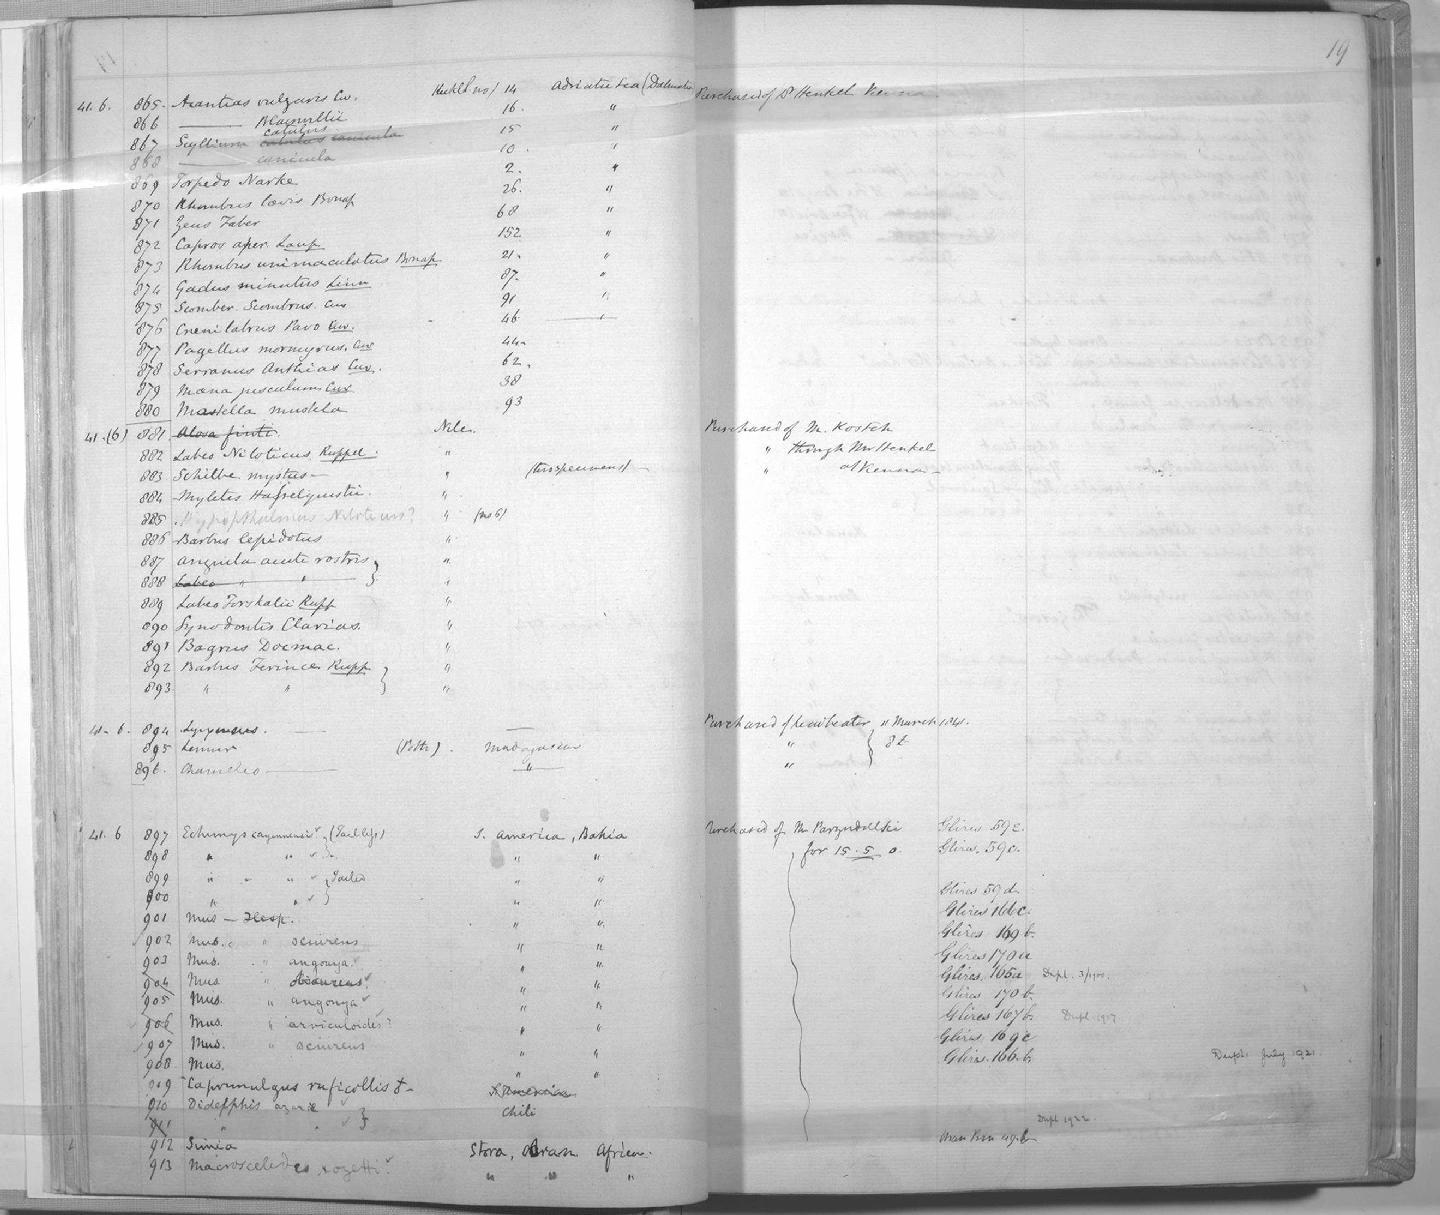 19
41. 6. 865. Acanthias vulgaris Cuv. 14 Adriatic Sea (Dalmatia Purchased of Dr Henkel Vienna
866 ——— Blainvillii 16. "
catulus
867 Scyllium catulus canicula 15 "
868 ——— canicula 10 "
869 Torpedo Narke 2. "
870 Rhombus laevis Bonap 26. "
871 Zeus Faber 68 "
872 Capros aper. 152 "
873 Rhombus unimaculatus Bonap 21. "
874 Gadus minutus Linn 87. "
875 Scomber Scombrus. Cuv 91 "
876 Crenilabrus Pavo Cuv. 46 ——"——
877 Pagellus mormyrus. Cuv 44.
878 Serranus Anthias Cuv. 62.
879 Maena jusculum Cuv 38
880 Mustella mustela 93
41.(6) 881 Alosa finta. Nile. Purchased of M. Kostch
882 Labeo Niloticus. Ruppel. " " through Mr Henkel
883 Schilbe mystus — " (two specimens) — " of Vienna —
884 Myletes Hasselquistii. "
885. Hypopthalmus Niloticus? " (no 6)
886 Barbus lepidotus "
887 anguila acute rostris } "
888 Labeo " " } "
889 Labeo Forskalii Rupp "
890 Synodontis Clarias. "
891 Bagrus Docmac. "
892 Barbus Perince Rupp } "
893 " " } "
41. 6. 894 —— Purchased of Leadbeater " March 1841.
895 Lemur Madagascar " } 8£
896. Chameleo —— " "
41. 6 897 Echimys cayennensis (Tail less) S. America, Bahia Purchased of Mr Parzudellki Glires 59e.
898 " " " " for 15. 5. 0. Glires. 59c.
899 " " " } Tailed " "
900 " " } " " Glires 59d.
901 Mus — " " Glires 166c.
902 Mus. " sciureus " " Glires 169b.
903 Mus. " angouya. " " Glires 170a
904 Mus " " " Glires. 165a Dupl. 3/1900.
905 Mus. " angouya " " Glires 170b.
906 Mus. " arviculoides? " " Glires 167b. Dupl 1917
907 Mus. " sciureus " Glires 169c
908 Mus. " " Glires. 166b. Dupl. July 1921.
909 Caprimulgus ruficollis ♂ — S. America
910 Didelphis azarae } Chili
911 " " } Dupl 1922.
912 Simia Stora, Oran Africa.
913 Macroscelides rozetti " " "